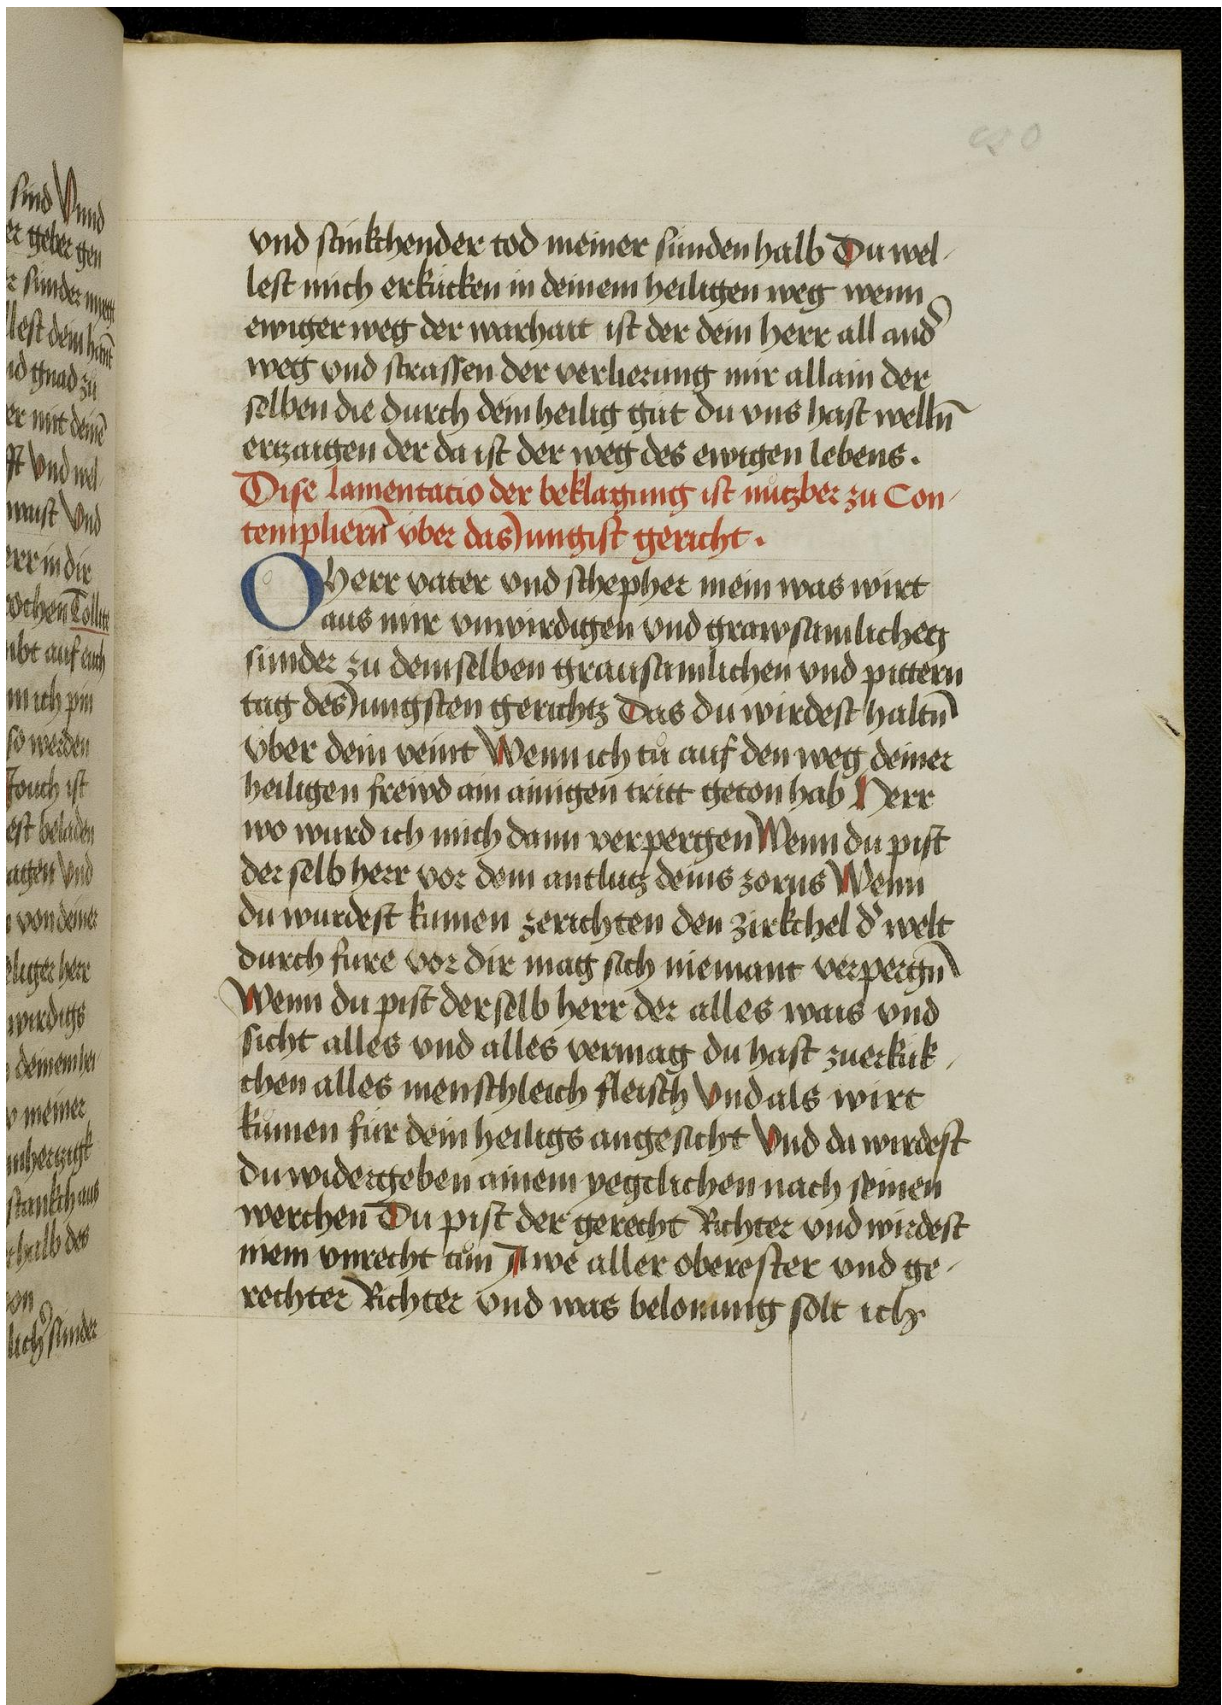 sind Vnnd
er geber gen
r sunder
llest dein
nd gnad zu
er mit deinē
st Vnd wel
Vnd
err in dir
ochen Tollite
auf euch
m ich pin
so werden
Jouch ist
est beladen
agen Vnd
von deiner
herr
wirdigs
meiner
stankch aus
halb des
lich sunder
vnd stinkchender tod meiner sunden halb Du wel-
lest mich erkücken in deinem heiligen weg wenn
ewiger weg der warhait ist der dein herr all and᷑
weg vnd strassen der verlierung mir allain der
selben die durch dein heilig güt du vns hast welln̄
ertzaigen der da ist der weg des ewigen lebens.
Dise lamentacio der beklagung ist nützber zu Con-
templiern̄ über das Jungist gericht.
O Herr vater vnd schepher mein was wirt
aus mir vnwirdigen vnd grawsamlichen
sunder zu demselben grausamlichen vnd pittern
tag des Jungsten gerichtz Das du wirdest haltn̄
über dein veint Wenn ich tů auf den weg deiner
heiligen freiwd ain ainigen tritt geton hab Herr
wo wurd ich mich dann verpergen Wenn du pist
der selb herr vor dem antlutz deins zorns Wenn
du wurdest kumen zerichten den zirkchel d᷑ welt
durch fure vor dir mag sich niemant verpergn̄
Wenn du pist der selb herr der alles wais vnd
sicht alles vnd alles vermag du hast zuerkük-
chen alles menschleich fleisch Vnd als wirt
kůmen für dein heiligs angesicht Vnd da wirdest
du widergeben ainem yegclichen nach seinen
werchen Du pist der gerecht Richter vnd wirdest
niem vnrecht tůn Awe aller oberester vnd ge-
rechter Richter vnd was belonung solt ich